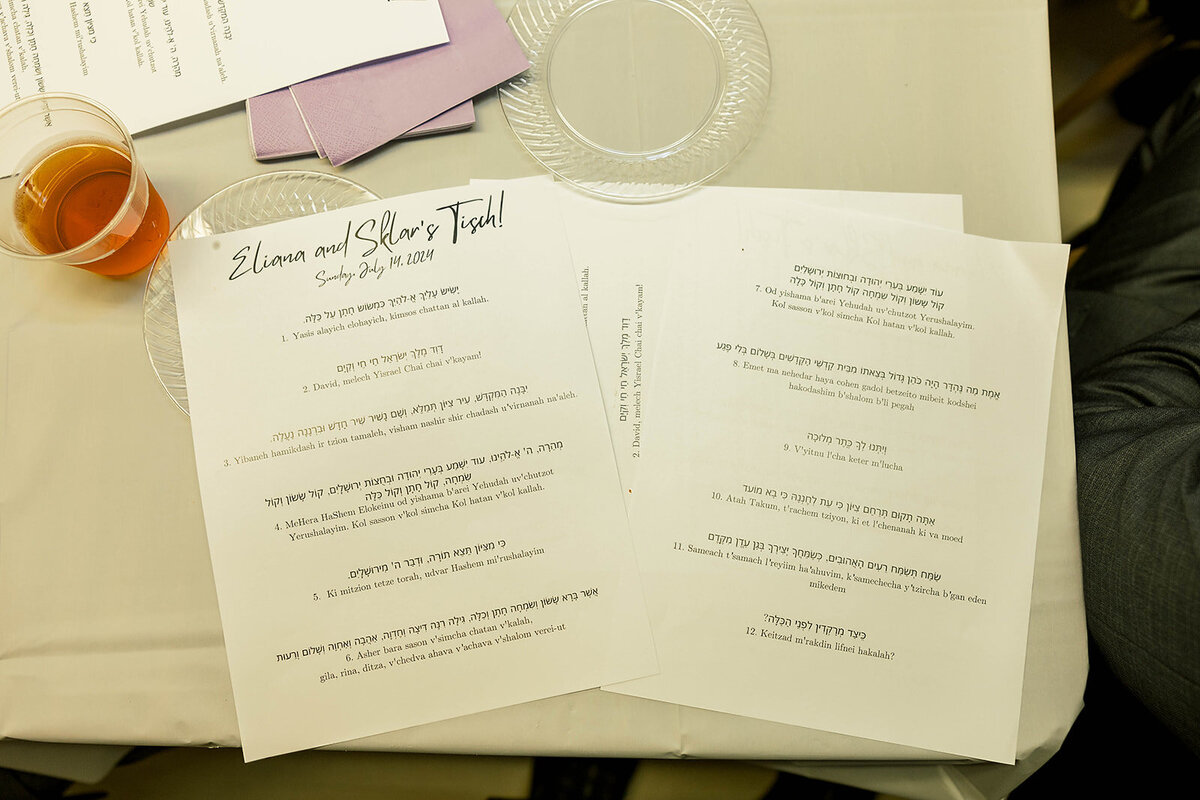 Eliana and Sklar's Tisch!
Sunday, July 14, 2024
יָשִׂישׂ עָלַיִךְ אֱ-לֹהָיִךְ כִּמְשׂוֹשׂ חָתָן עַל כַּלָּה.
1. Yasis alayich elohayich, kimsos chattan al kallah.
דָּוִד מֶלֶךְ יִשְׂרָאֵל חַי חַי וְקַיָּם
2. David, melech Yisrael Chai chai v'kayam!
יִבָּנֶה הַמִּקְדָּשׁ, עִיר צִיּוֹן תְּמַלֵּא, וְשָׁם נָשִׁיר שִׁיר חָדָשׁ וּבִרְנָנָה נַעֲלֶה.
3. Yibaneh hamikdash ir tzion tamaleh, visham nashir shir chadash u'virnanah na'aleh.
מְהֵרָה, ה' אֱ-לֹהֵינוּ, עוֹד יִשָּׁמַע בְּעָרֵי יְהוּדָה וּבְחֻצוֹת יְרוּשָׁלָיִם, קוֹל שָׂשׂוֹן וְקוֹל
שִׂמְחָה, קוֹל חָתָן וְקוֹל כַּלָּה
4. MeHera HaShem Elokeinu od yishama b'arei Yehudah uv'chutzot
Yerushalayim. Kol sasson v'kol simcha Kol hatan v'kol kallah.
כִּי מִצִּיּוֹן תֵּצֵא תוֹרָה, וּדְבַר ה' מִירוּשָׁלָיִם.
5. Ki mitzion tetze torah, ndvar Hashem mi'rushalayim
אֲשֶׁר בָּרָא שָׂשׂוֹן וְשִׂמְחָה חָתָן וְכַלָּה, גִּילָה רִנָּה דִּיצָה וְחֶדְוָה, אַהֲבָה וְאַחְוָה וְשָׁלוֹם וְרֵעוּת
6. Asher bara sason v'simcha chatan v'kalah,
gila, rina, ditza, v'chedva ahava v'achava v'shalom verei-ut
עוֹד יִשָּׁמַע בְּעָרֵי יְהוּדָה וּבְחוּצוֹת יְרוּשָׁלַיִם
קוֹל שָׂשׂוֹן וְקוֹל שִׂמְחָה קוֹל חָתָן וְקוֹל כַּלָּה
7. Od yishama b'arei Yehudah uv'chutzot Yerushalayim.
Kol sasson v'kol simcha Kol hatan v'kol kallah.
אֱמֶת מַה נֶּהְדָּר הָיָה כֹּהֵן גָּדוֹל בְּצֵאתוֹ מִבֵּית קָדְשֵׁי הַקֳּדָשִׁים בְּשָׁלוֹם בְּלִי פֶגַע
8. Emet ma nehedar haya cohen gadol betzeito mibeit kodshei
hakodashim b'shalom b'li pegah
וְיִתְּנוּ לְךָ כֶּתֶר מְלוּכָה
9. V'yitnu l'cha keter m'lucha
אַתָּה תָקוּם תְּרַחֵם צִיּוֹן כִּי עֵת לְחֶנְנָהּ כִּי בָא מוֹעֵד
10. Atah Takum, t'rachem tziyon, ki et l'chenanah ki va moed
שַׂמֵּחַ תְּשַׂמַּח רֵעִים הָאֲהוּבִים, כְּשַׂמֵּחֲךָ יְצִירְךָ בְּגַן עֵדֶן מִקֶּדֶם
11. Sameach t'samach l'reyiim ha'ahuvim, k'samechecha y'tzircha b'gan eden
mikedem
כֵּיצַד מְרַקְּדִין לִפְנֵי הַכַּלָּה?
12. Keitzad m'rakdin lifnei hakalah?
דָּוִד מֶלֶךְ יִשְׂרָאֵל חַי חַי וְקַיָּם
2. David, melech Yisrael Chai chai v'kayam!
al kallah.
v'virnanah na'aleh.
Yehudah uv'chutzot
v'kol kallah.
כִּי מִצִּיּוֹן תֵּצֵא
Hashem mi'rushalayim
simcha chatan v'kalah,
v'achava v'shalom verei-ut